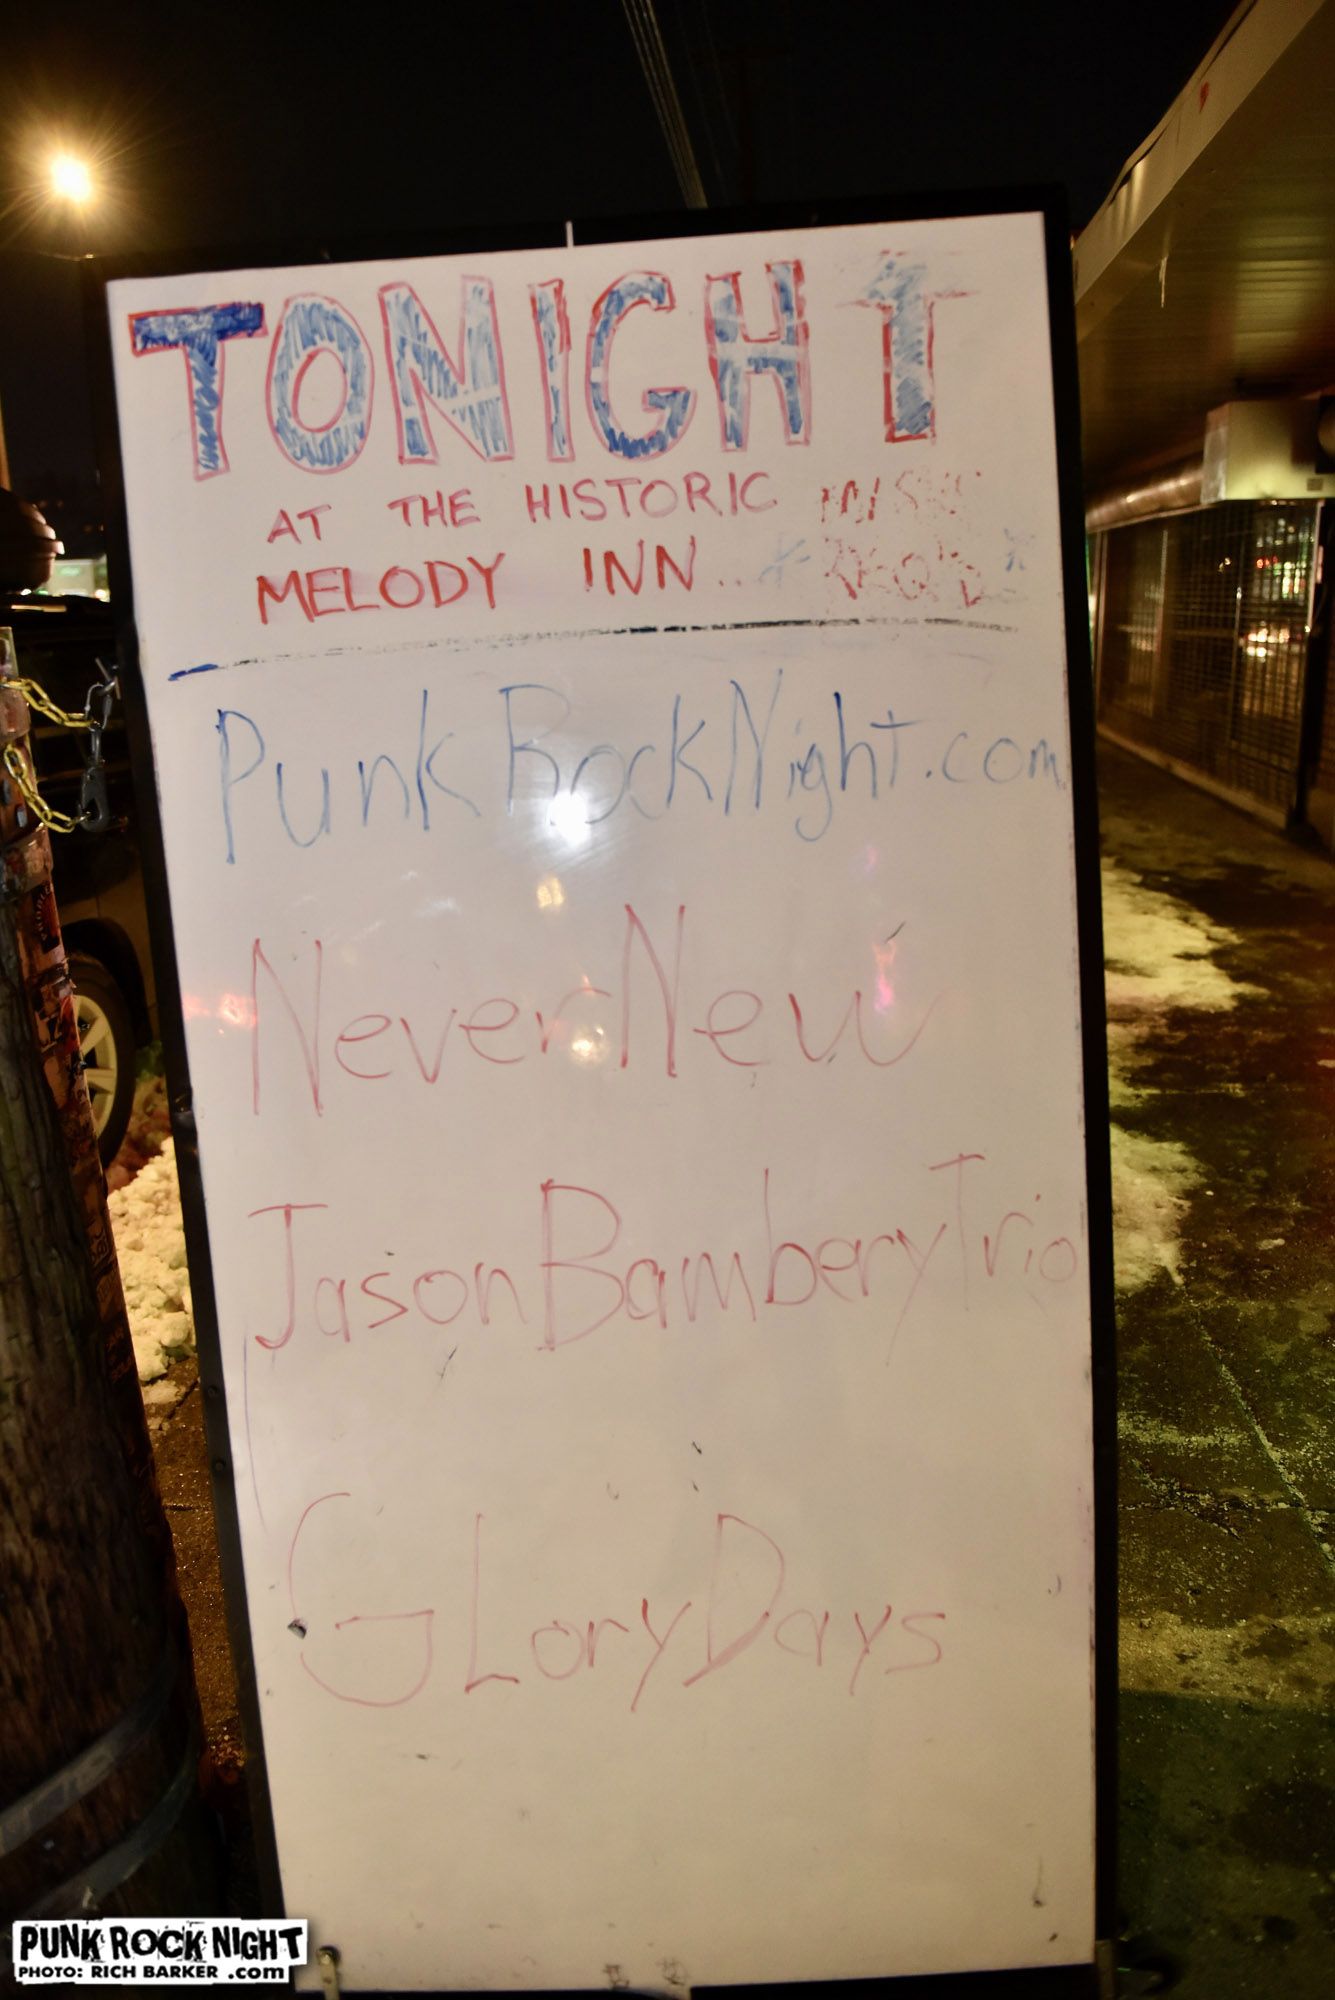 TONIGHT
AT THE HISTORIC
MELODY INN..
PunkRockNight.com
NeverNew
JasonBamberyTrio
GLoryDays
PUNK ROCK NIGHT
PHOTO: RICH BARKER .com